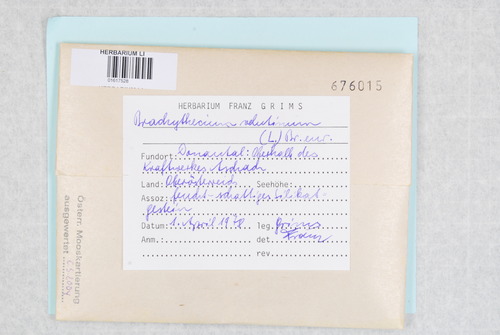 HERBARIUM LI
01617526
676015
HERBARIUM FRANZ GRIMS
Brachythecium velutinum
(L.) Br. eur.
Fundort: Donautal: Oberhalb des
Kraftwerkes Aschach
Land: Oberösterreich Seehöhe:
Assoz: feucht-schattiges Silikat-
gestein
Datum: 1. April 1970 leg. Grims
Anm.: det. Franz
rev.
Österr. Mooskartierung
ausgewertet